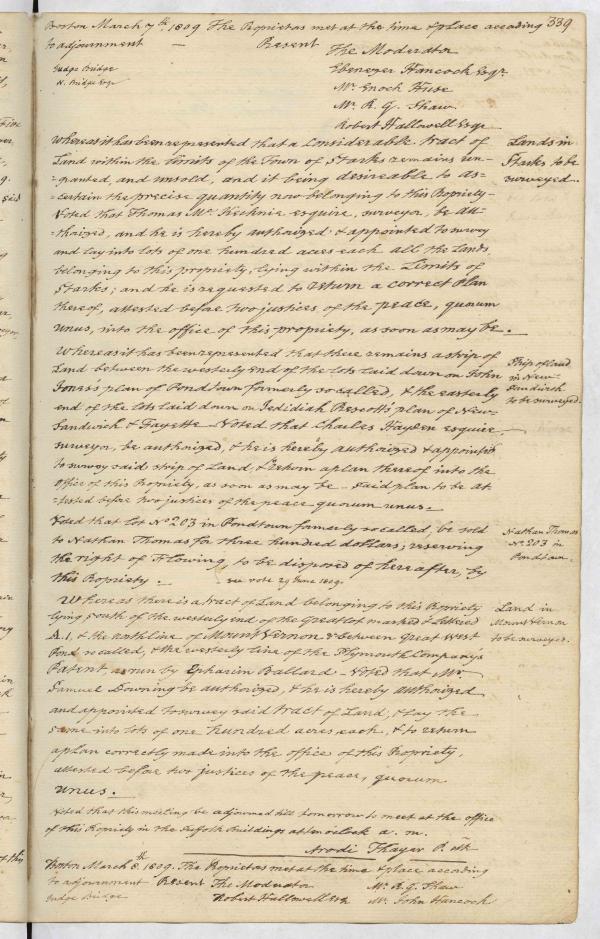 339
Boston March 7th. 1809 The Proprietors met at the time & place according
to adjournment — Present The Moderator
Judge Bridge Ebenezer Hancock Esqr.
N. Bridge Esqr Mr. Enoch Huse
Mr. R. G. Shaw
Robert Hallowell Esqr
Whereas it has been represented that a considerable tract of
Land within the limits of the Town of Starks remains un-
-granted, and unsold, and it being desireable to as-
-certain the precise quantity now belonging to this Propriety—
Voted that Thomas Mc. Kechnie esquire, surveyor, be au-
-thorized, and he is hereby authorized & appointed to survey
and lay into lots of one hundred acres each all the Lands
belonging to this propriety, lying within the Limits of
Starks; and he is requested to return a correct Plan
thereof, attested before two justices of the peace, quorum
unus, into the office of this propriety, as soon as may be.
Lands in
Starks to be
surveyed.
Whereas it has been represented that there remains a strip of
Land between the westerly end of the lots laid down on John
Jones's plan of Pondtown formerly so called, & the easterly
end of the lots laid down on Jedidiah Prescott's plan of New-
Sandwich & Fayette — Voted that Charles Hayden esquire
surveyor, be authorized, & he is hereby authorized & appointed
to survey said strip of Land, & return a plan thereof into the
office of this Propriety, as soon as may be — said plan to be at-
-tested before two justices of the peace quorum unus.
Strip of land
in New
Sandwich
to be surveyed.
Voted that lot No. 203 in Pondtown formerly so called, be sold
to Nathan Thomas for three hundred dollars; reserving
the right of Flowing, to be disposed of hereafter, by
this Propriety. see vote 29 June 1809.
Nathan Thomas
No. 203 in
Pondtown.
Whereas there is a tract of Land belonging to this Propriety
lying south of the westerly end of the Great lot marked & lettered
A. 1, & the north line of Mount Vernon & between Great West
Pond so called, & the westerly line of the Plymouth Company's
Patent, as run by Ephraim Ballard — Voted that Mr.
Samuel Downing be authorized, & he is hereby authorized
and appointed to survey said tract of Land, & lay the
same into lots of one hundred acres each, & to return
a plan correctly made into the office of this Propriety,
attested before two justices of the peace, quorum
unus.
Land in
Mount Vernon
to be surveyed.
Voted that this meeting be adjourned till tomorrow to meet at the office
of this Propriety in the Suffolk Buildings at ten o'clock a. m.
Arodi Thayer P. Clk
Boston March 8th. 1809. The Proprietors met at the time & place according
to adjournment Present The Moderator Mr. R. G. Shaw
Judge Bridge Robert Hallowell Esqr Mr. John Hancock